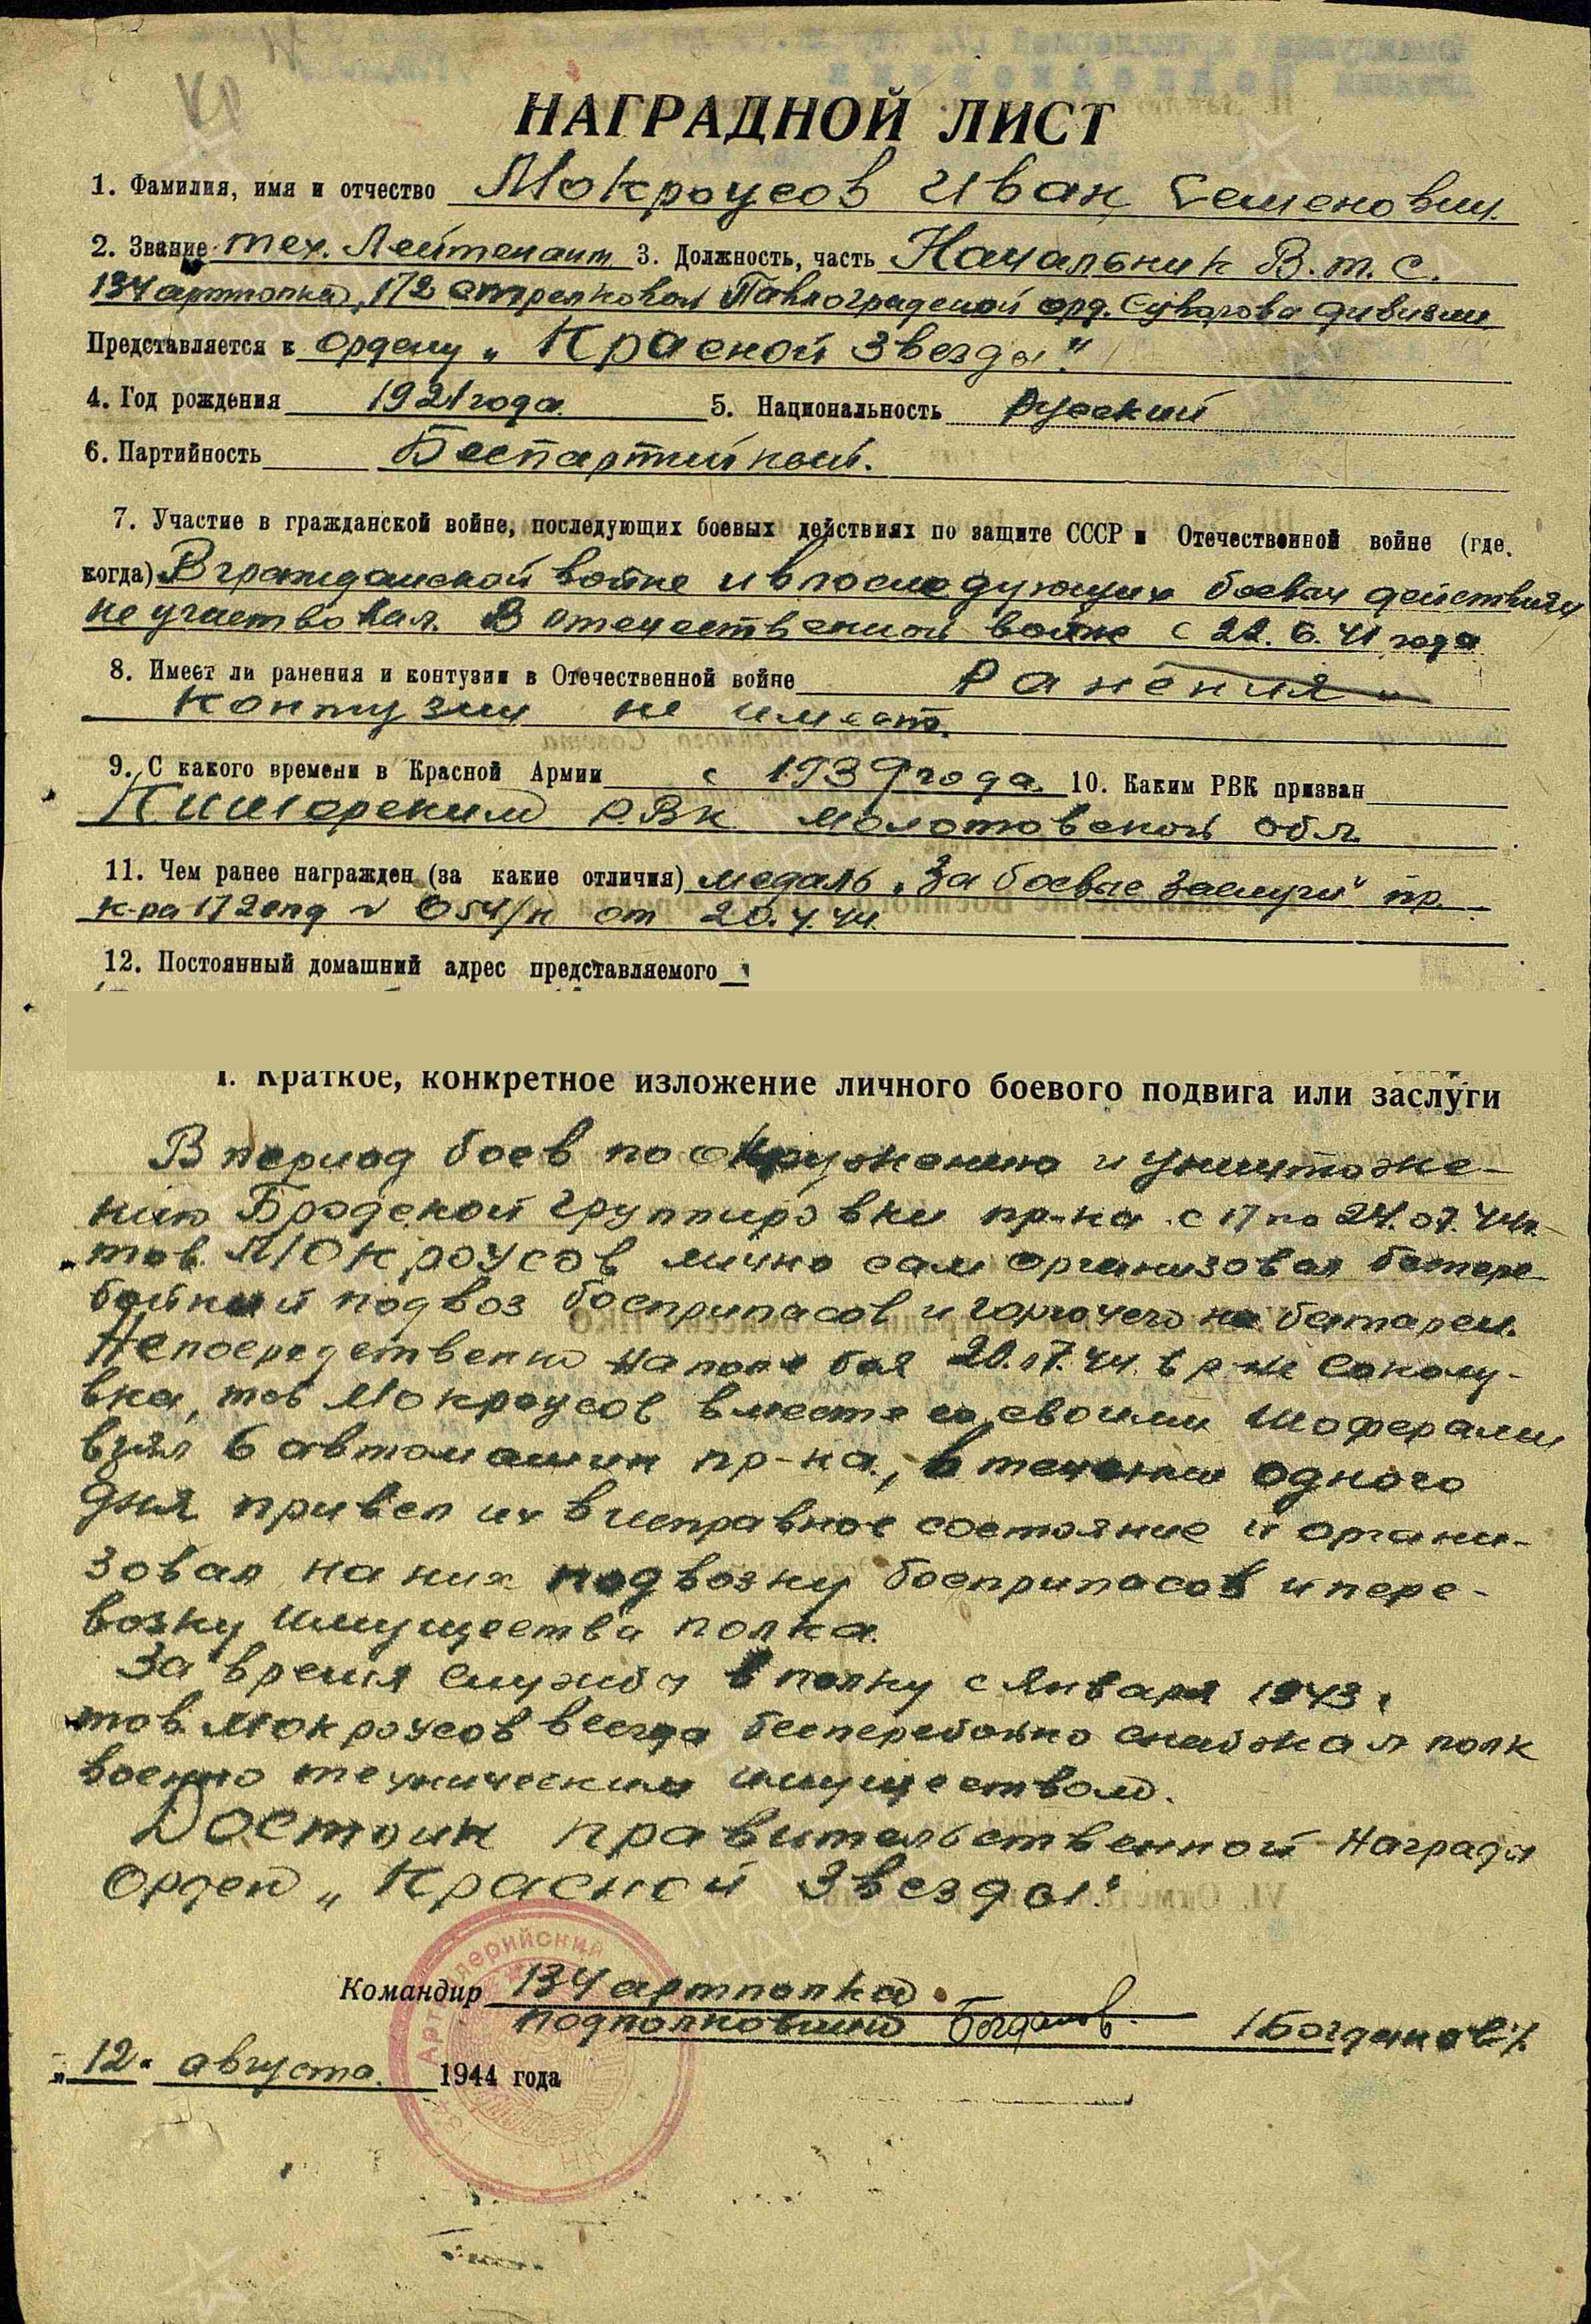 НАГРАДНОЙ ЛИСТ
1. Фамилия, имя и отчество Мокроусов Иван Семенович.
2. Звание тех. Лейтенант 3. Должность, часть Начальник В.т.с.
134 артполка, 172 стрелковой Павлоградской орд. Суворова дивизии
Представляется к ордену „Красной Звезды"
4. Год рождения 1921 года. 5. Национальность Русский
6. Партийность Беспартийный.
7. Участие в гражданской войне, последующих боевых действиях по защите СССР и Отечественной войне (где,
когда) В гражданской войне и в последующих боевых действиях
не участвовал. В отечественной войне с 22.6.41 года
8. Имеет ли ранения и контузии в Отечественной войне Ранения и
контузии не имеет.
9. С какого времени в Красной Армии с 1939 года. 10. Каким РВК призван
Кишерским РВК Молотовской обл.
11. Чем ранее награжден (за какие отличия) медаль „За боевые заслуги" пр.
к-ра 172 спд № 054/н от 20.4.44.
12. Постоянный домашний адрес представляемого
I. Краткое, конкретное изложение личного боевого подвига или заслуги
В период боев по окружению и уничтоже-
нию Бродской группировки пр-ка с 17 по 24.07.44г.
тов. МОКРОУСОВ лично сам организовал беспере-
бойный подвоз боеприпасов и горючего на батареи.
Непосредственно на поле боя 20.07.44 в р-не Сокоλу-
вка, тов Мокроусов вместе со своими шоферами
взял 6 автомашин пр-ка, в течении одного
дня привел их в исправное состояние и органи-
зовал на них подвозку боеприпасов и пере-
возку имущества полка.
За время службы в полку с января 1943 г
тов. Мокроусов всегда бесперебойно снабжал полк
военно техническим имуществом.
Достоин правительственной Награды
Орден „Красной Звезды".
Командир 134 артполка
подполковник Богданов /Богданов/
„12" августа 1944 года
Артиллерийский
134
НК